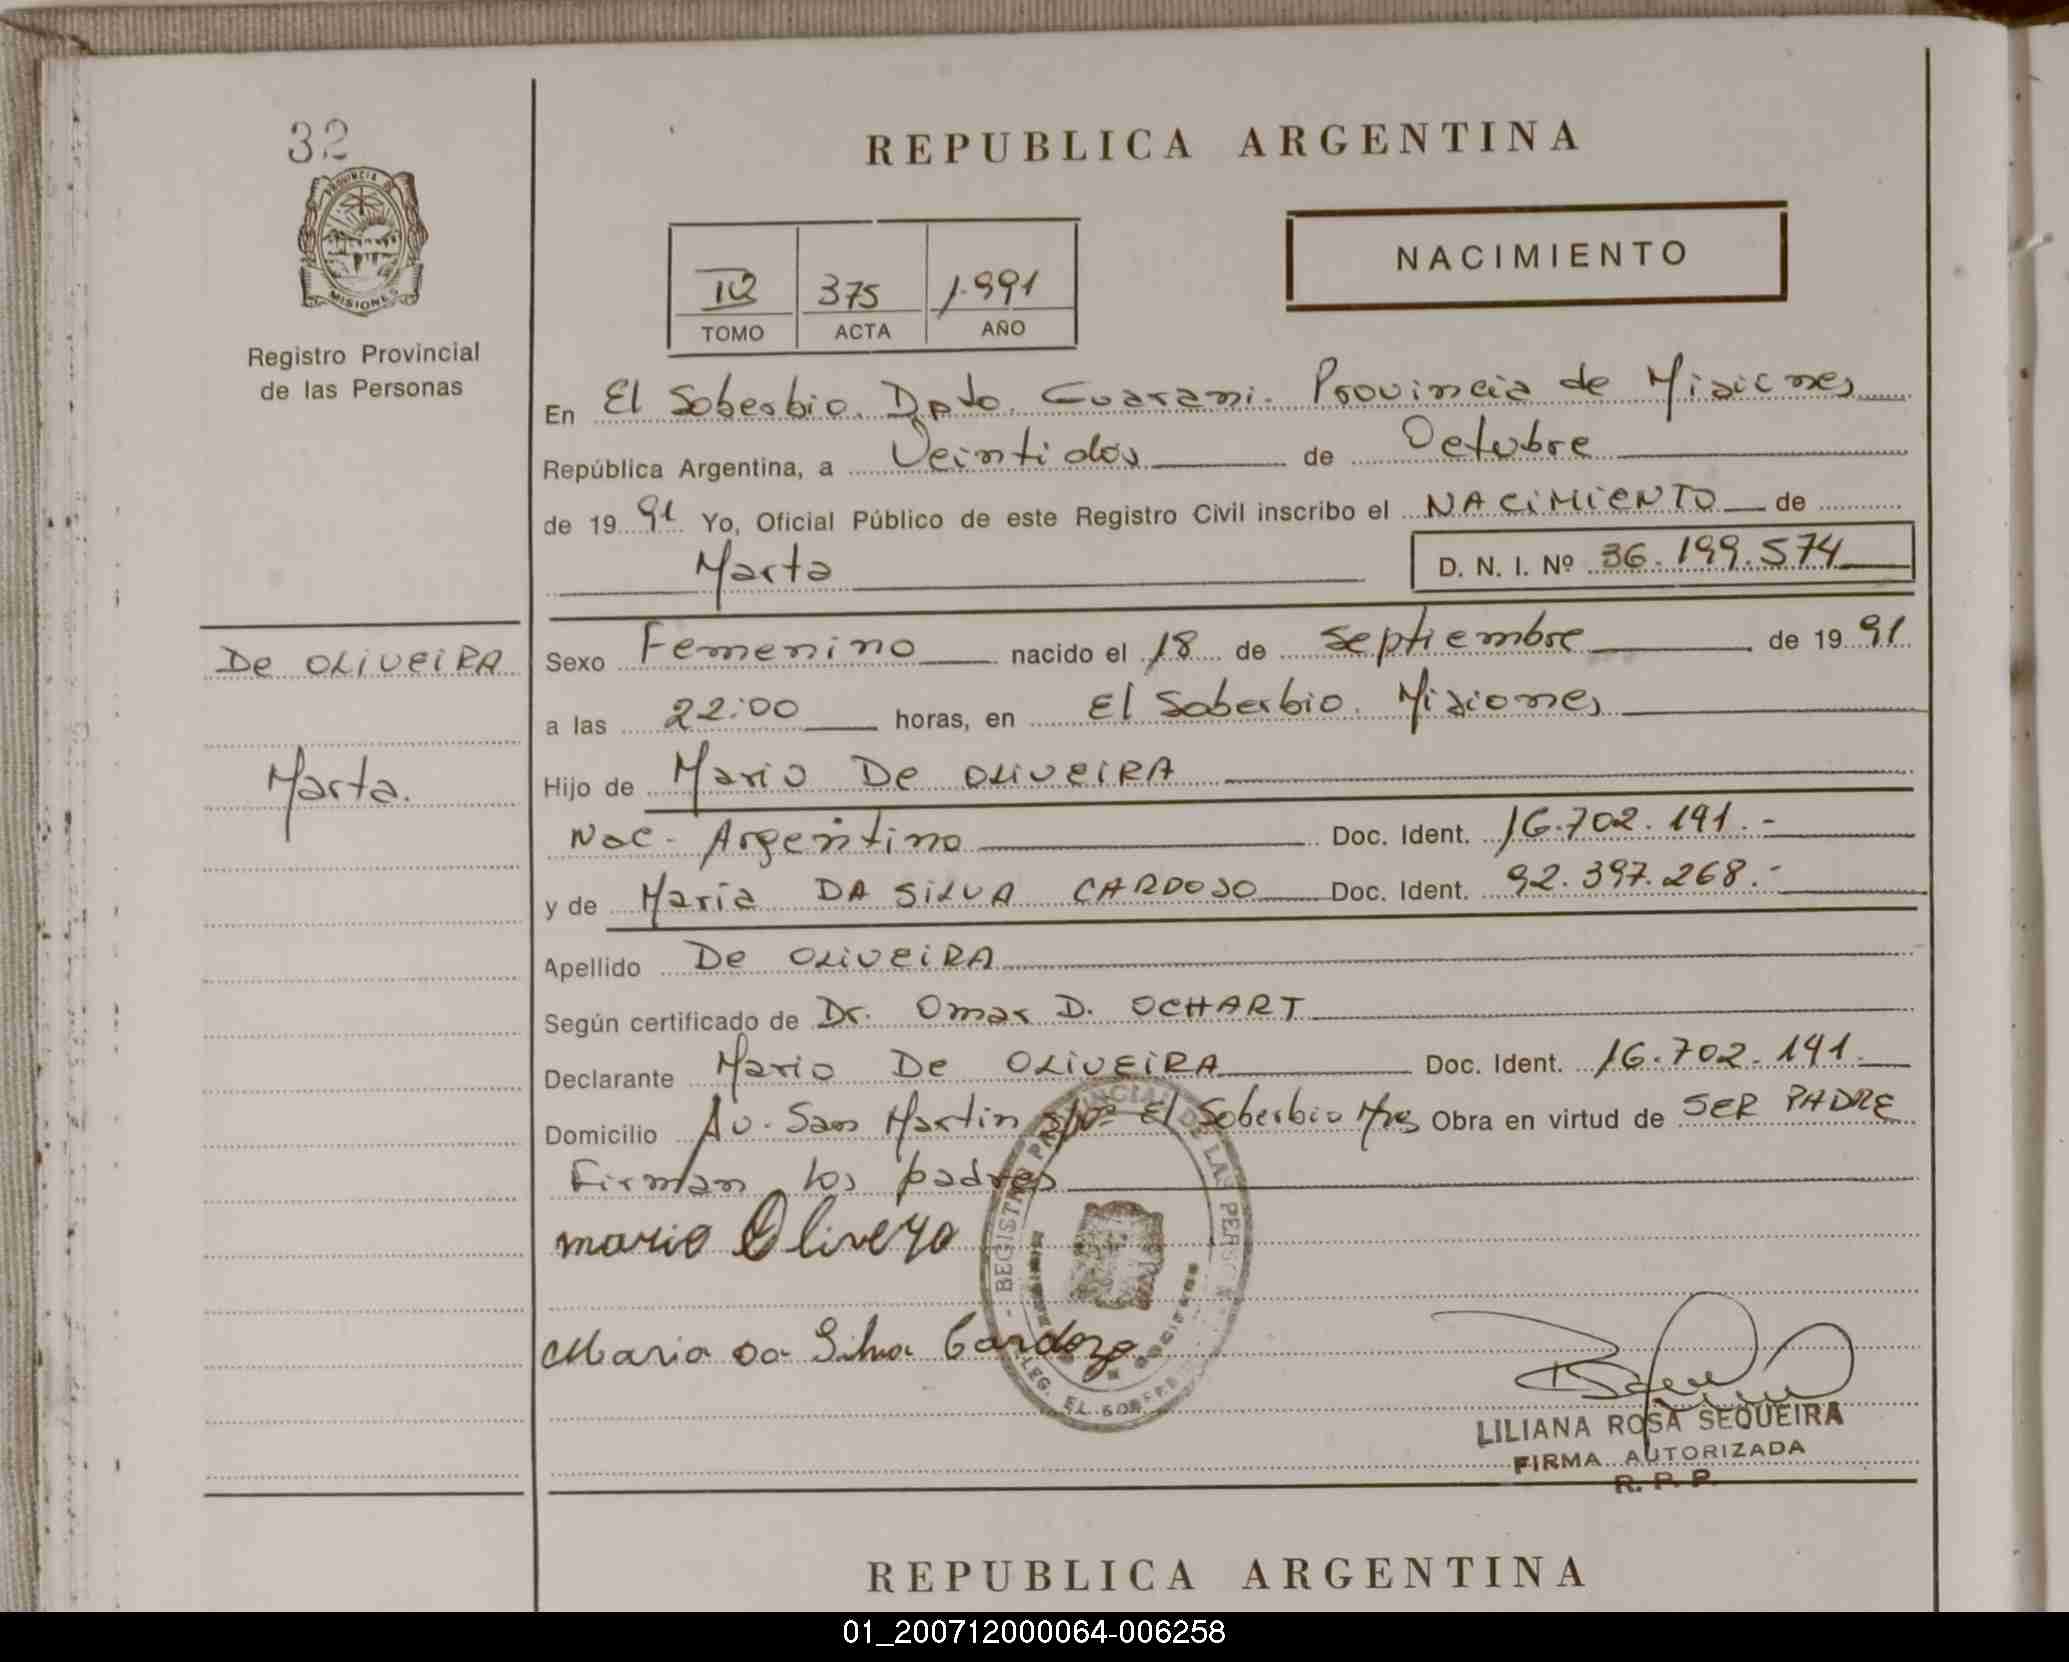 32
PROVINCIA DE
MISIONES
Registro Provincial
de las Personas
REPUBLICA ARGENTINA
NACIMIENTO
375 1.991
TOMO ACTA AÑO
En El Soberbio. Dpto. Guarani. Provincia de Misiones
República Argentina, a Veintidos de Octubre
de 1991 Yo, Oficial Público de este Registro Civil inscribo el NACIMIENTO de
Marta D. N. I. Nº 36.199.574
DE OLIVEIRA
Marta.
Sexo Femenino nacido el 18 de Septiembre de 1991
a las 22:00 horas, en El Soberbio. Misiones
Hijo de Mario De OLIVEIRA
Nac. Argentino Doc. Ident. 16.702.191.-
y de Maria DA SILVA CARDOSO Doc. Ident. 92.397.268.-
Apellido De OLIVEIRA
Según certificado de Dr. Omar D. OCHART
Declarante Mario De OLIVEIRA Doc. Ident. 16.702.191.
Domicilio Av. San Martin El Soberbio Mnes Obra en virtud de SER PADRE
Firman los padres
mario Olivera
Maria Da Silva Cardozo
LILIANA ROSA SEQUEIRA
FIRMA AUTORIZADA
R. P. P.
REPUBLICA ARGENTINA
01_200712000064-006258